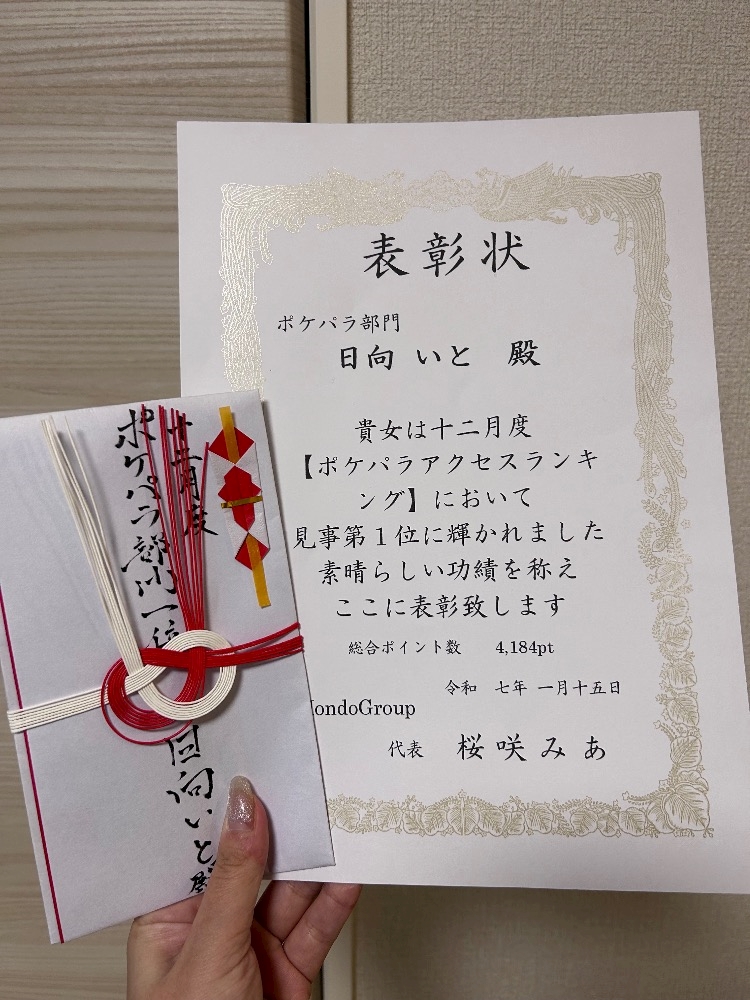 表彰状
ポケパラ部門
日向 いと 殿
貴女は十二月度
【ポケパラアクセスランキ
ング】において
見事第１位に輝かれました
素晴らしい功績を称え
ここに表彰致します
総合ポイント数 4,184pt
令和 七年 一月十五日
ondoGroup
代表 桜咲みあ
十二月度
ポケパラ部門一位
日向いと殿